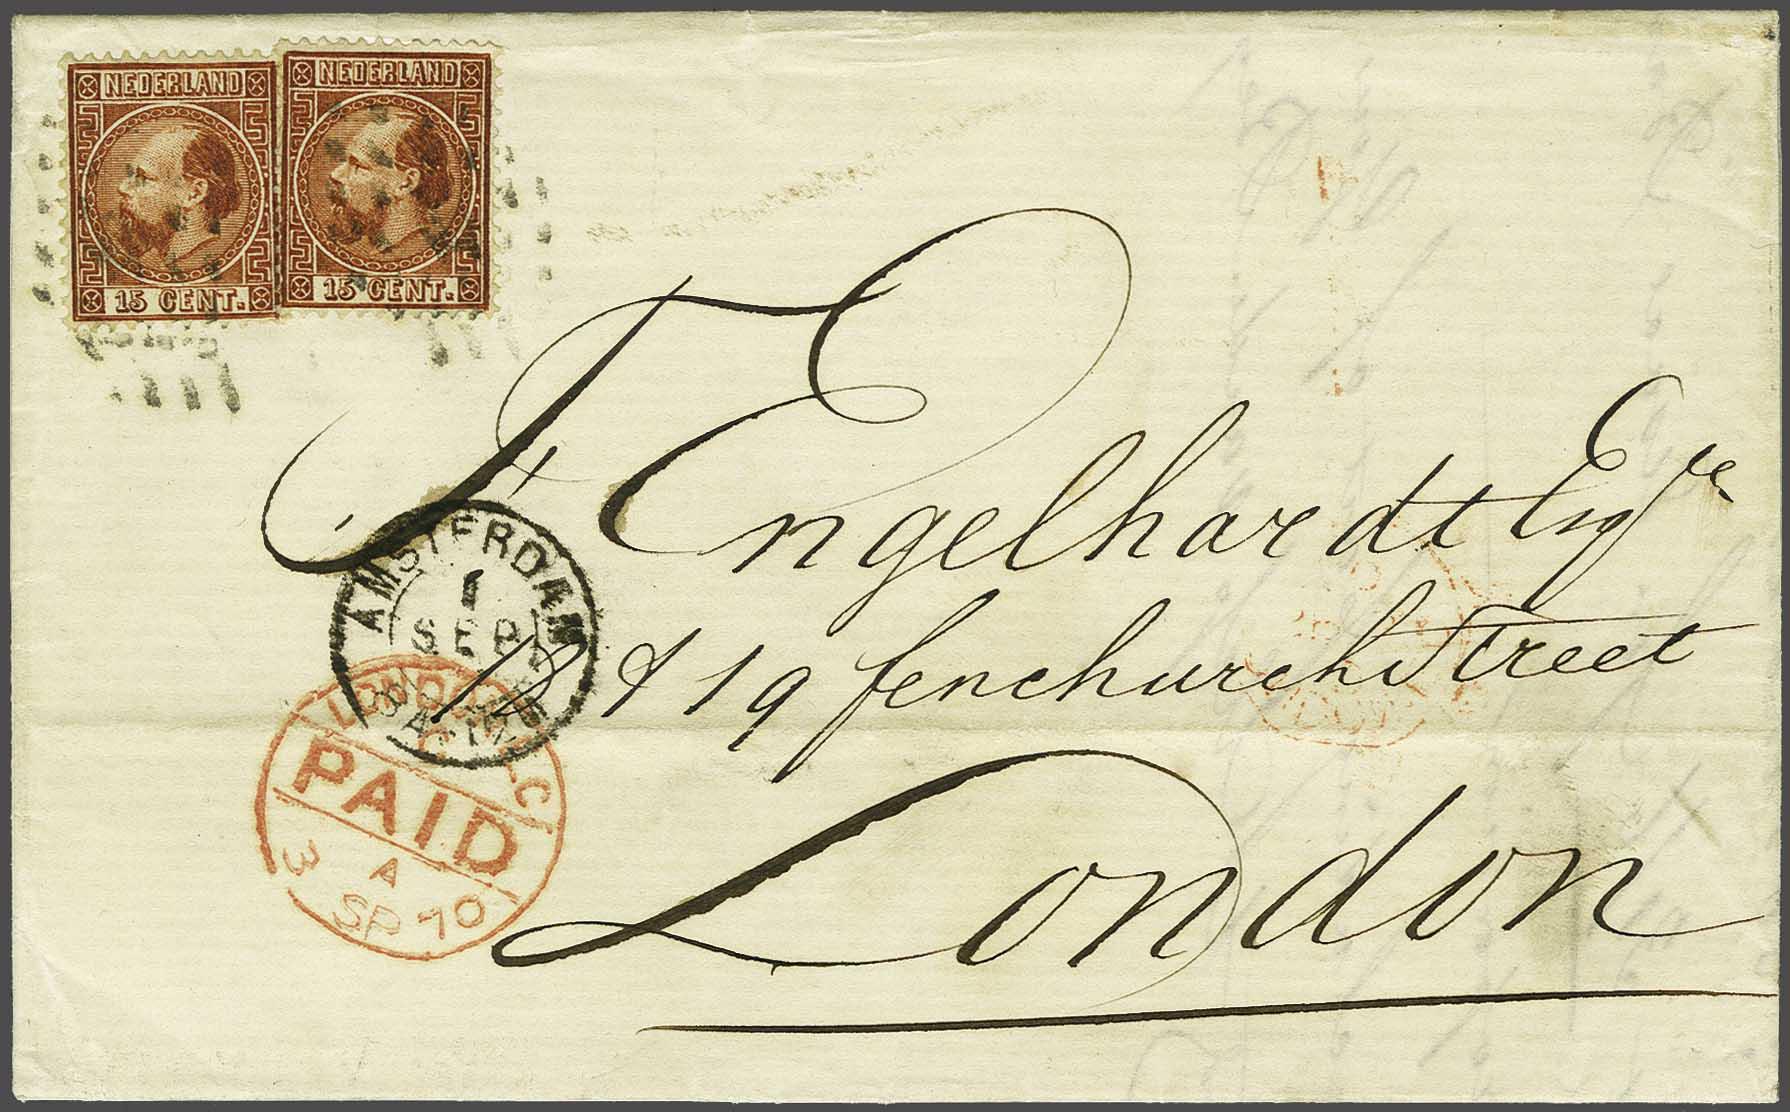 NEDERLAND NEDERLAND
15 CENT. 15 CENT.
F Engelhardt Esqre
AMSTERDAM
1
SEP
18 & 19 fenchurch Street
LONDON
PAID
3 A
SP 70
London